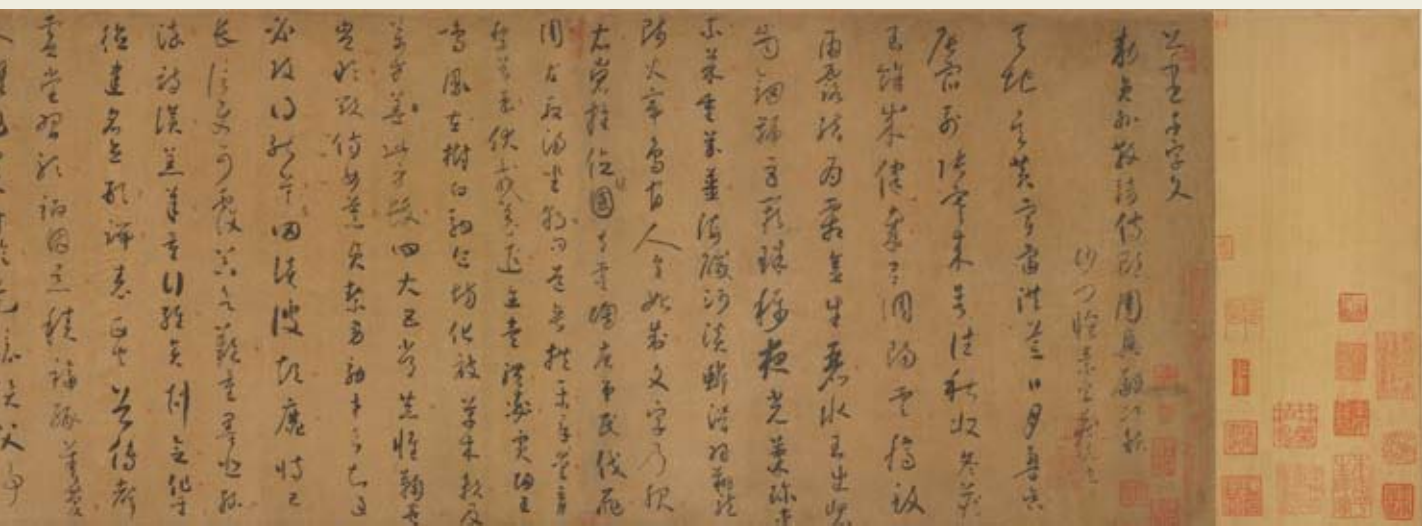 千字文
敕員外散騎侍郎周興嗣次韻
沙門懷素
天地玄黃宇宙洪荒日月盈昃
辰宿列張寒來暑往秋收冬藏
閏餘成歲律呂調陽雲騰致
雨露結為霜金生麗水玉出崑
岡劍號巨闕珠稱夜光菓珍李
柰菜重芥薑海鹹河淡鱗潛羽翔龍
師火帝鳥官人皇始制文字乃服
衣裳推位讓國有虞陶唐弔民伐罪
周發殷湯坐朝問道垂拱平章愛育
黎首臣伏戎羌遐邇壹體率賓歸王
鳴鳳在樹白駒食場化被草木賴及
萬方蓋此身髮四大五常恭惟鞠養
豈敢毀傷女慕貞潔男效才良知過
必改得能莫忘罔談彼短靡恃己
長信使可覆器欲難量墨悲絲
染詩讚羔羊景行維賢剋念作聖
德建名立形端表正空谷傳聲
虛堂習聽禍因惡積福緣善慶